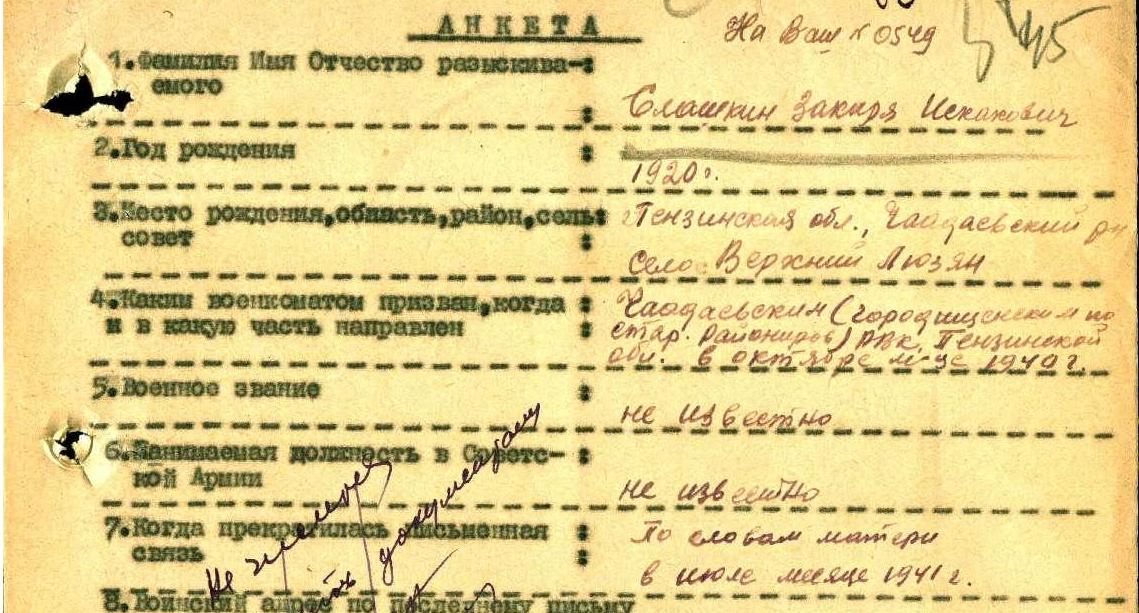 АНКЕТА
На Ваш № 0549
45
1.Фамилия Имя Отчество разыскива-:
емого
Слашкин Закиря Искакович
2.Год рождения :
1920г.
3.Место рождения,область,район,сель:
совет :
Пензинская обл., Чаадаевский рн
село Верхний Люзян
4.Каким военкоматом призван,когда :
и в какую часть направлен :
Чаадаевским (Городищенским по
стар. Райониров) РВК, Пензинской
обл. в октябре м-це 1940 г.
5.Военное звание :
не известно
6.Занимаемая должность в Советс- :
кой Армии :
не известно
7.Когда прекратилась письменная :
связь :
По словам матери
в июле месяце 1941 г.
8.Воинский адрес по последнему письму
Не
документам